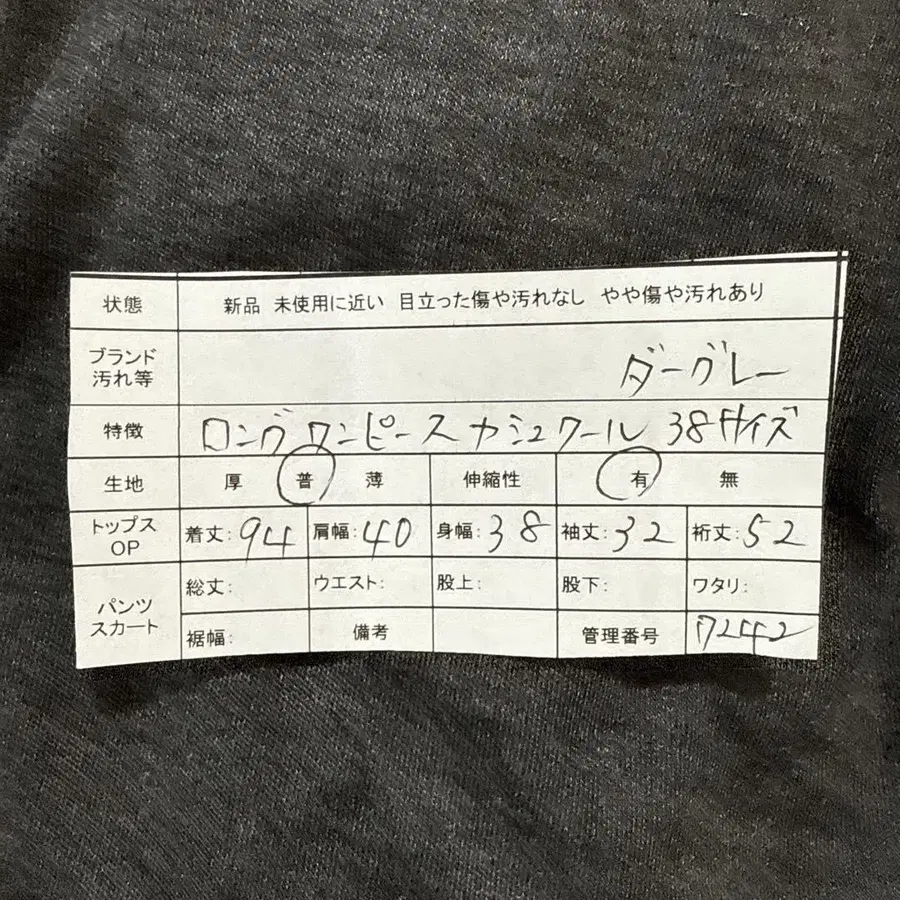 状態 新品 未使用に近い 目立った傷や汚れなし やや傷や汚れあり
ブランド
汚れ等 ダーグレー
特徴 ロングワンピース カシュクール 38サイズ
生地 厚 普 薄 伸縮性 有 無
トップス
OP 着丈:94 肩幅:40 身幅:38 袖丈:32 裄丈:52
パンツ
スカート 総丈: ウエスト: 股上: 股下: ワタリ:
裾幅: 備考 管理番号 7242